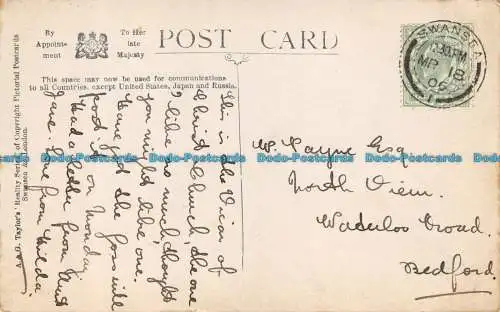 By
Appoint-
ment
To Her
late
Majesty
POST CARD
SWANSEA
MR 18
06
This space may now be used for communications
to all Countries, except United States, Japan and Russia.
A. & G. Taylor's "Reality Series" of Copyright Pictorial Postcards
Swansea and London.
This is the View of
Christ Church, the one
I like so much, thought
you might like one.
Have got the
will
post it on Monday.
Had a letter from Aunt
Jane. Love from Hilda.
W. Payne Esq
North View.
Waterloo Road.
Bedford.
Dodo-Postcards Dodo-Postcards Dodo-Postcards